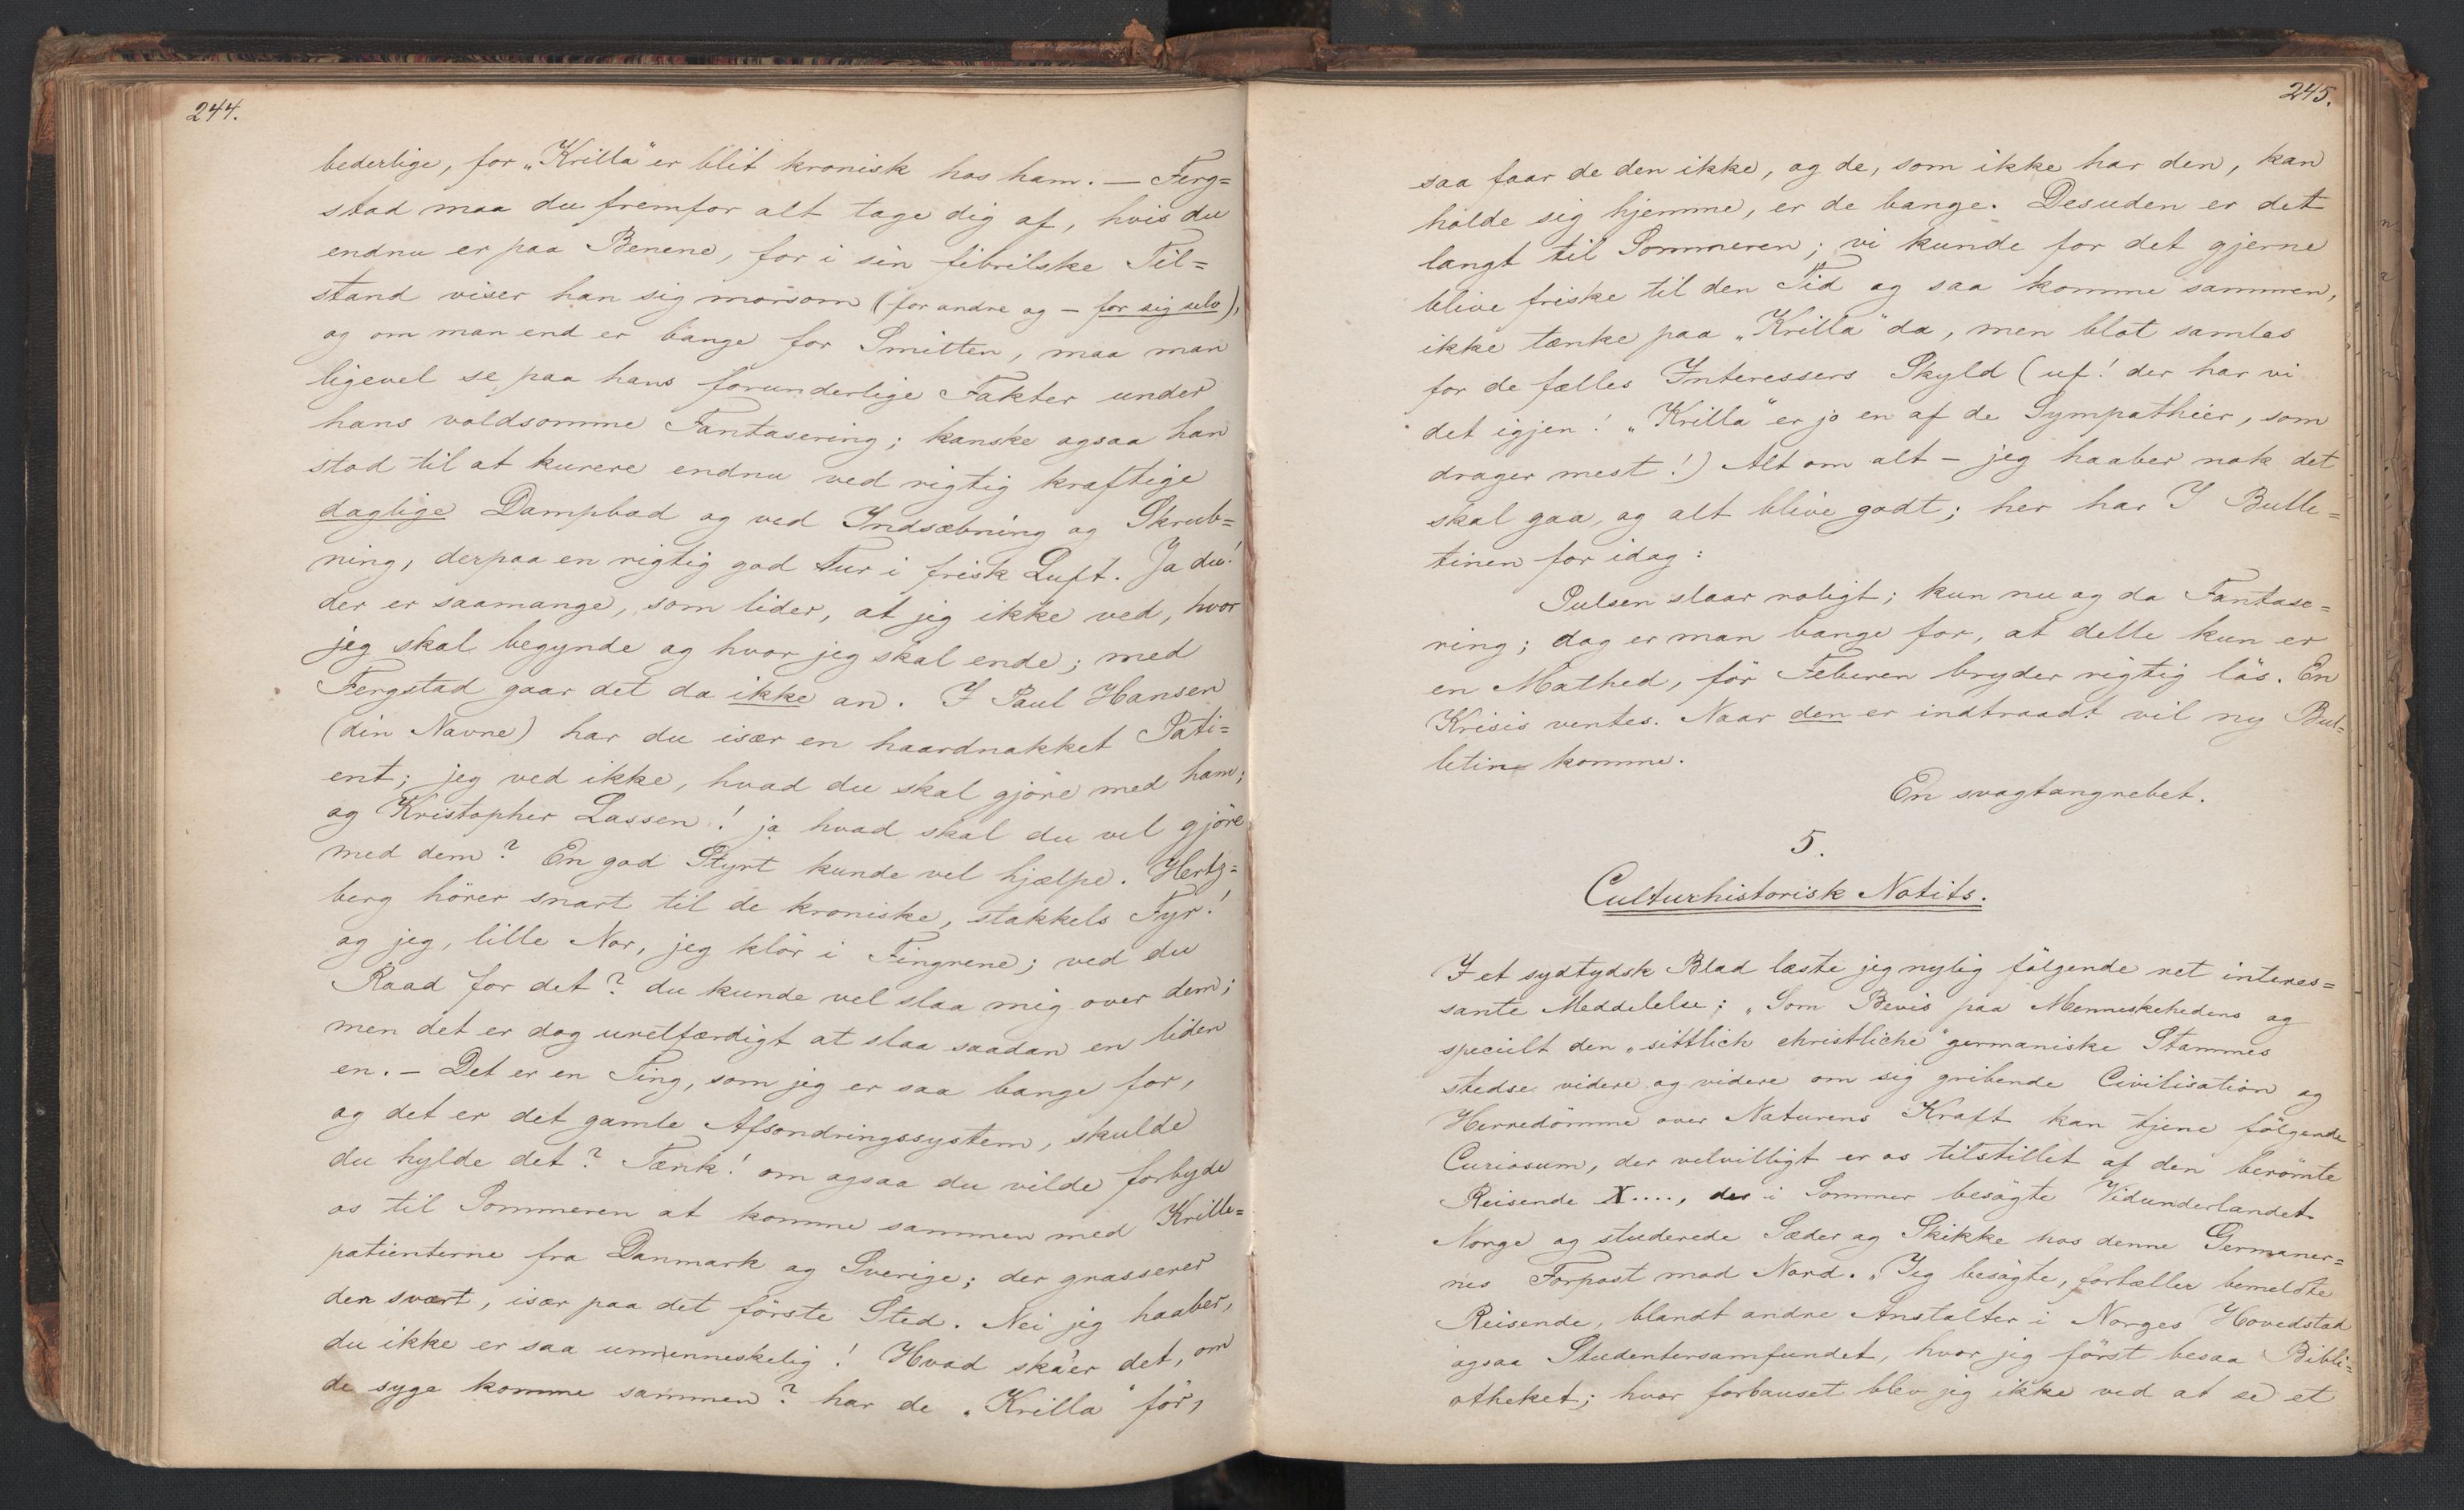 244.
bederlige, for „Krilla“ er blit kronisk hos ham. — Ferg=
stad maa du fremfor alt tage dig af, hvis du
endnu er paa Benene, for i sin febrilske Til=
stand viser han sig morsom (for andre og — for sig selv),
og om man end er bange for Smitten, maa man
ligevel se paa hans forunderlige Fakter under
hans voldsomme Fantasering; kanske ogsaa han
stod til at kurere endnu ved rigtig kraftige
daglige Dampbad og ved Indsæbning og Skrub=
ning, derpaa en rigtig god Tur i frisk Luft. Ja du!
der er saamange, som lider, at jeg ikke ved, hvor
jeg skal begynde og hvor jeg skal ende; med
Fergstad gaar det da ikke an. I Paul Hansen
(din Navne) har du især en haardnakket Pati=
ent; jeg ved ikke, hvad du skal gjöre med ham;
og Kristopher Lassen! ja hvad skal du vel gjöre
med dem? En god Styrt kunde vel hjælpe. Hertz=
berg hörer snart til de kroniske, stakkels Fyr!
og jeg, lille Nor, jeg klör i Fingrene; ved du
Raad for det? du kunde vel slaa mig over dem;
men det er dog uretfærdigt at slaa saadan en liden
en. — Det er en Ting, som jeg er saa bange for,
og det er det gamle Afsondringssystem, skulde
du hylde det? Tænk! om ogsaa du vilde forbyde
os til Sommeren at komme sammen med Krille=
patienterne fra Danmark og Sverige; der grasserer
den svært, især paa det förste Sted. Nei jeg haaber,
du ikke er saa umenneskelig! Hvad ska'er det, om
de syge komme sammen? har de „Krilla“ för,
245.
saa faar de den ikke, og de, som ikke har den, kan
holde sig hjemme, er de bange. Desuden er det
langt til Sommeren; vi kunde for det gjerne
blive friske til den Tid og saa komme sammen,
ikke tænke paa „Krilla“ da, men blot samles
for de fælles Interessers Skyld (uf! der har vi
det igjen! „Krilla“ er jo en af de Sympathier, som
drager mest!) Alt om alt — jeg haaber nok det
skal gaa, og alt blive godt; her har I Bulle=
tinen for idag:
Pulsen slaar roligt; kun nu og da Fantase=
ring; dog er man bange for, at dette kun er
en Mathed, för Feberen bryder rigtig lös. En
Krisis ventes. Naar den er indtraadt vil ny Bul=
letin komme.
En svagtangrebet.
5.
Culturhistorisk Notits.
I et sydtydsk Blad læste jeg nylig fölgende ret interes=
sante Meddelelse: „Som Bevis paa Menneskehedens og
specielt den „sittlich christliche“ germaniske Stammes
stedse videre og videre om sig gribende Civilisation og
Herredömme over Naturens Kraft kan tjene fölgende
Curiosum, der velvilligt er os tilstillet af den berömte
Reisende X...., der i Sommer besögte Vidunderlandet
Norge og studerede Sæder og Skikke hos denne Germaner=
nes Forpost mod Nord. „Jeg besögte, fortæller bemeldte
Reisende, blandt andre Anstalter i Norges Hovedstad
ogsaa Studentersamfundet, hvor jeg först besaa Bibli=
otheket; hvor forbauset blev jeg ikke ved at se et